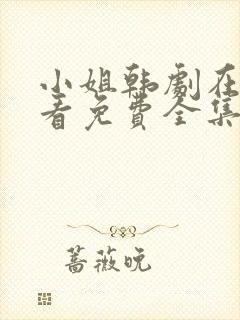 小姐韩剧在
看免费全集
蔷薇晚